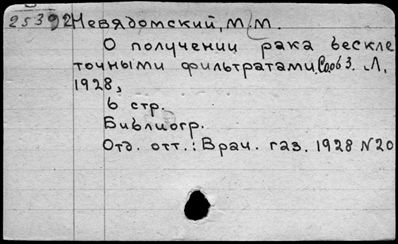 25392 Невядомский, М.М.
О получении рака бескле
точными фильтратами. Сооб 3. Л,
1928,
6 стр.
Библиогр.
Отд. отт.: Врач. газ. 1928 N20